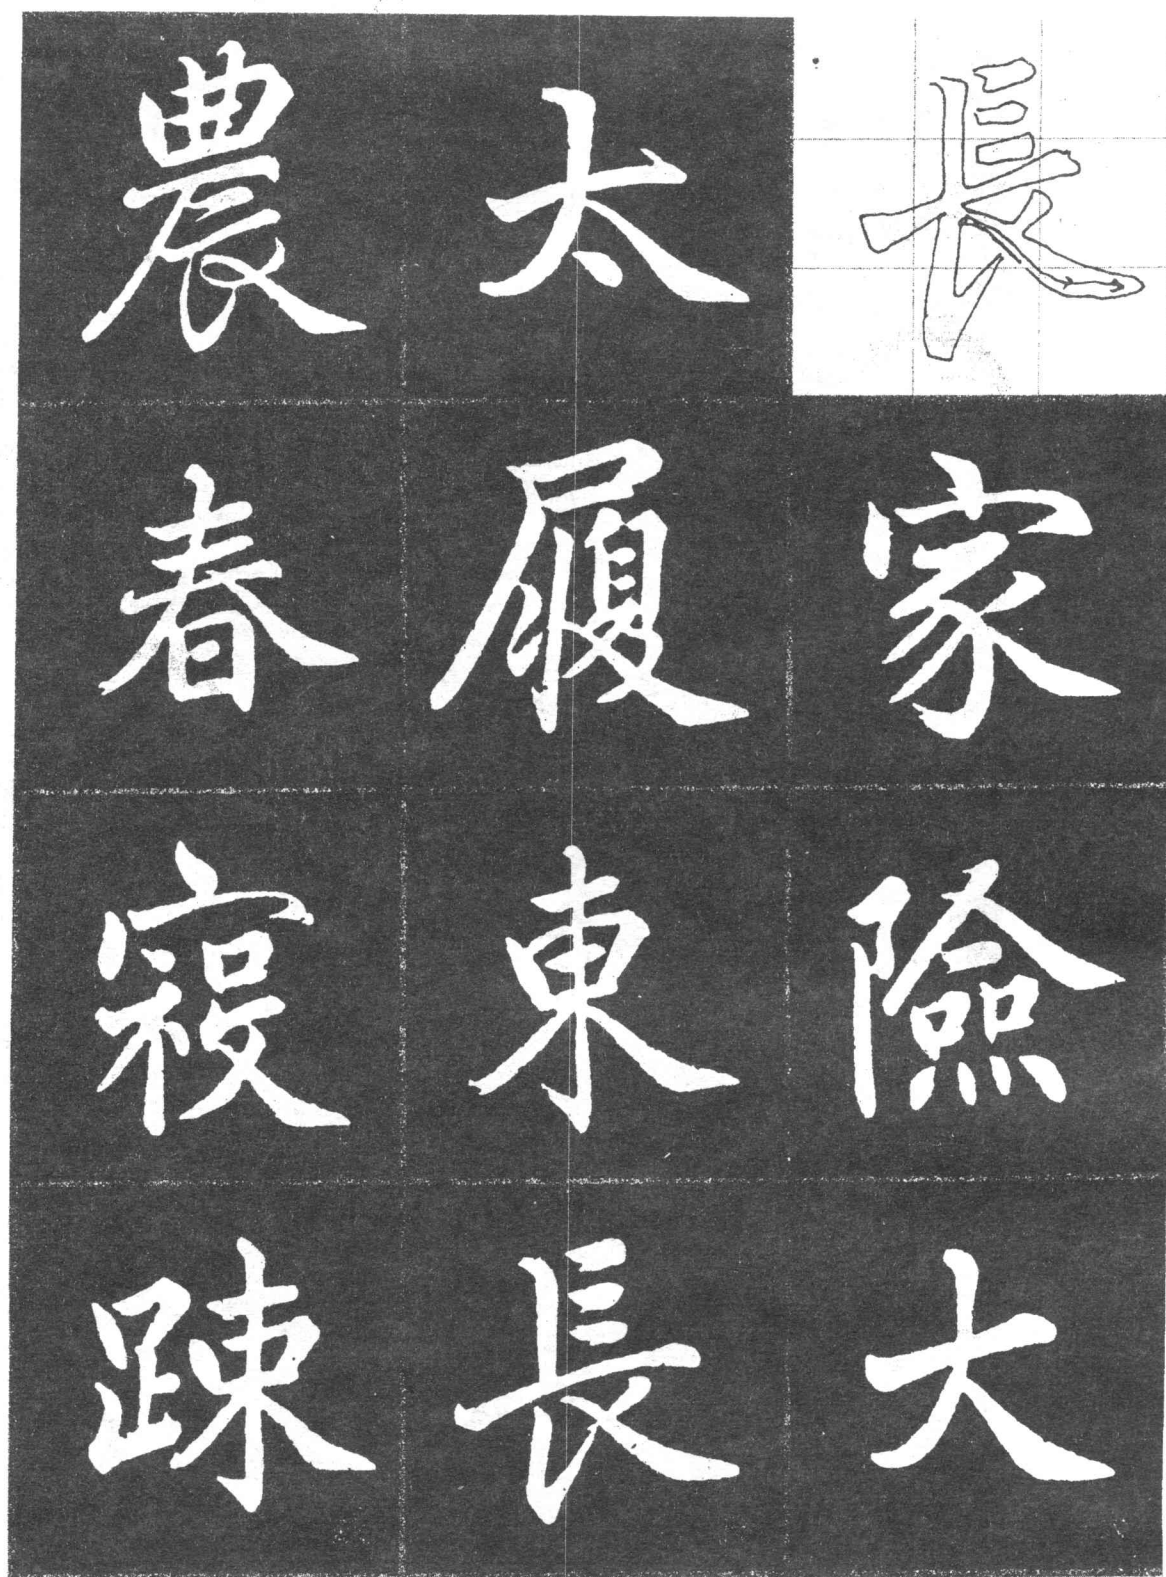 長家險大
太履東長
農春寢踈